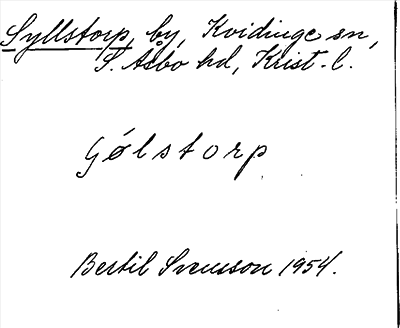 Syllstorp, by, Kvidinge sn,
S. Åsbo hd, Krist. l.
Gølstorp
Bertil Svensson 1954.